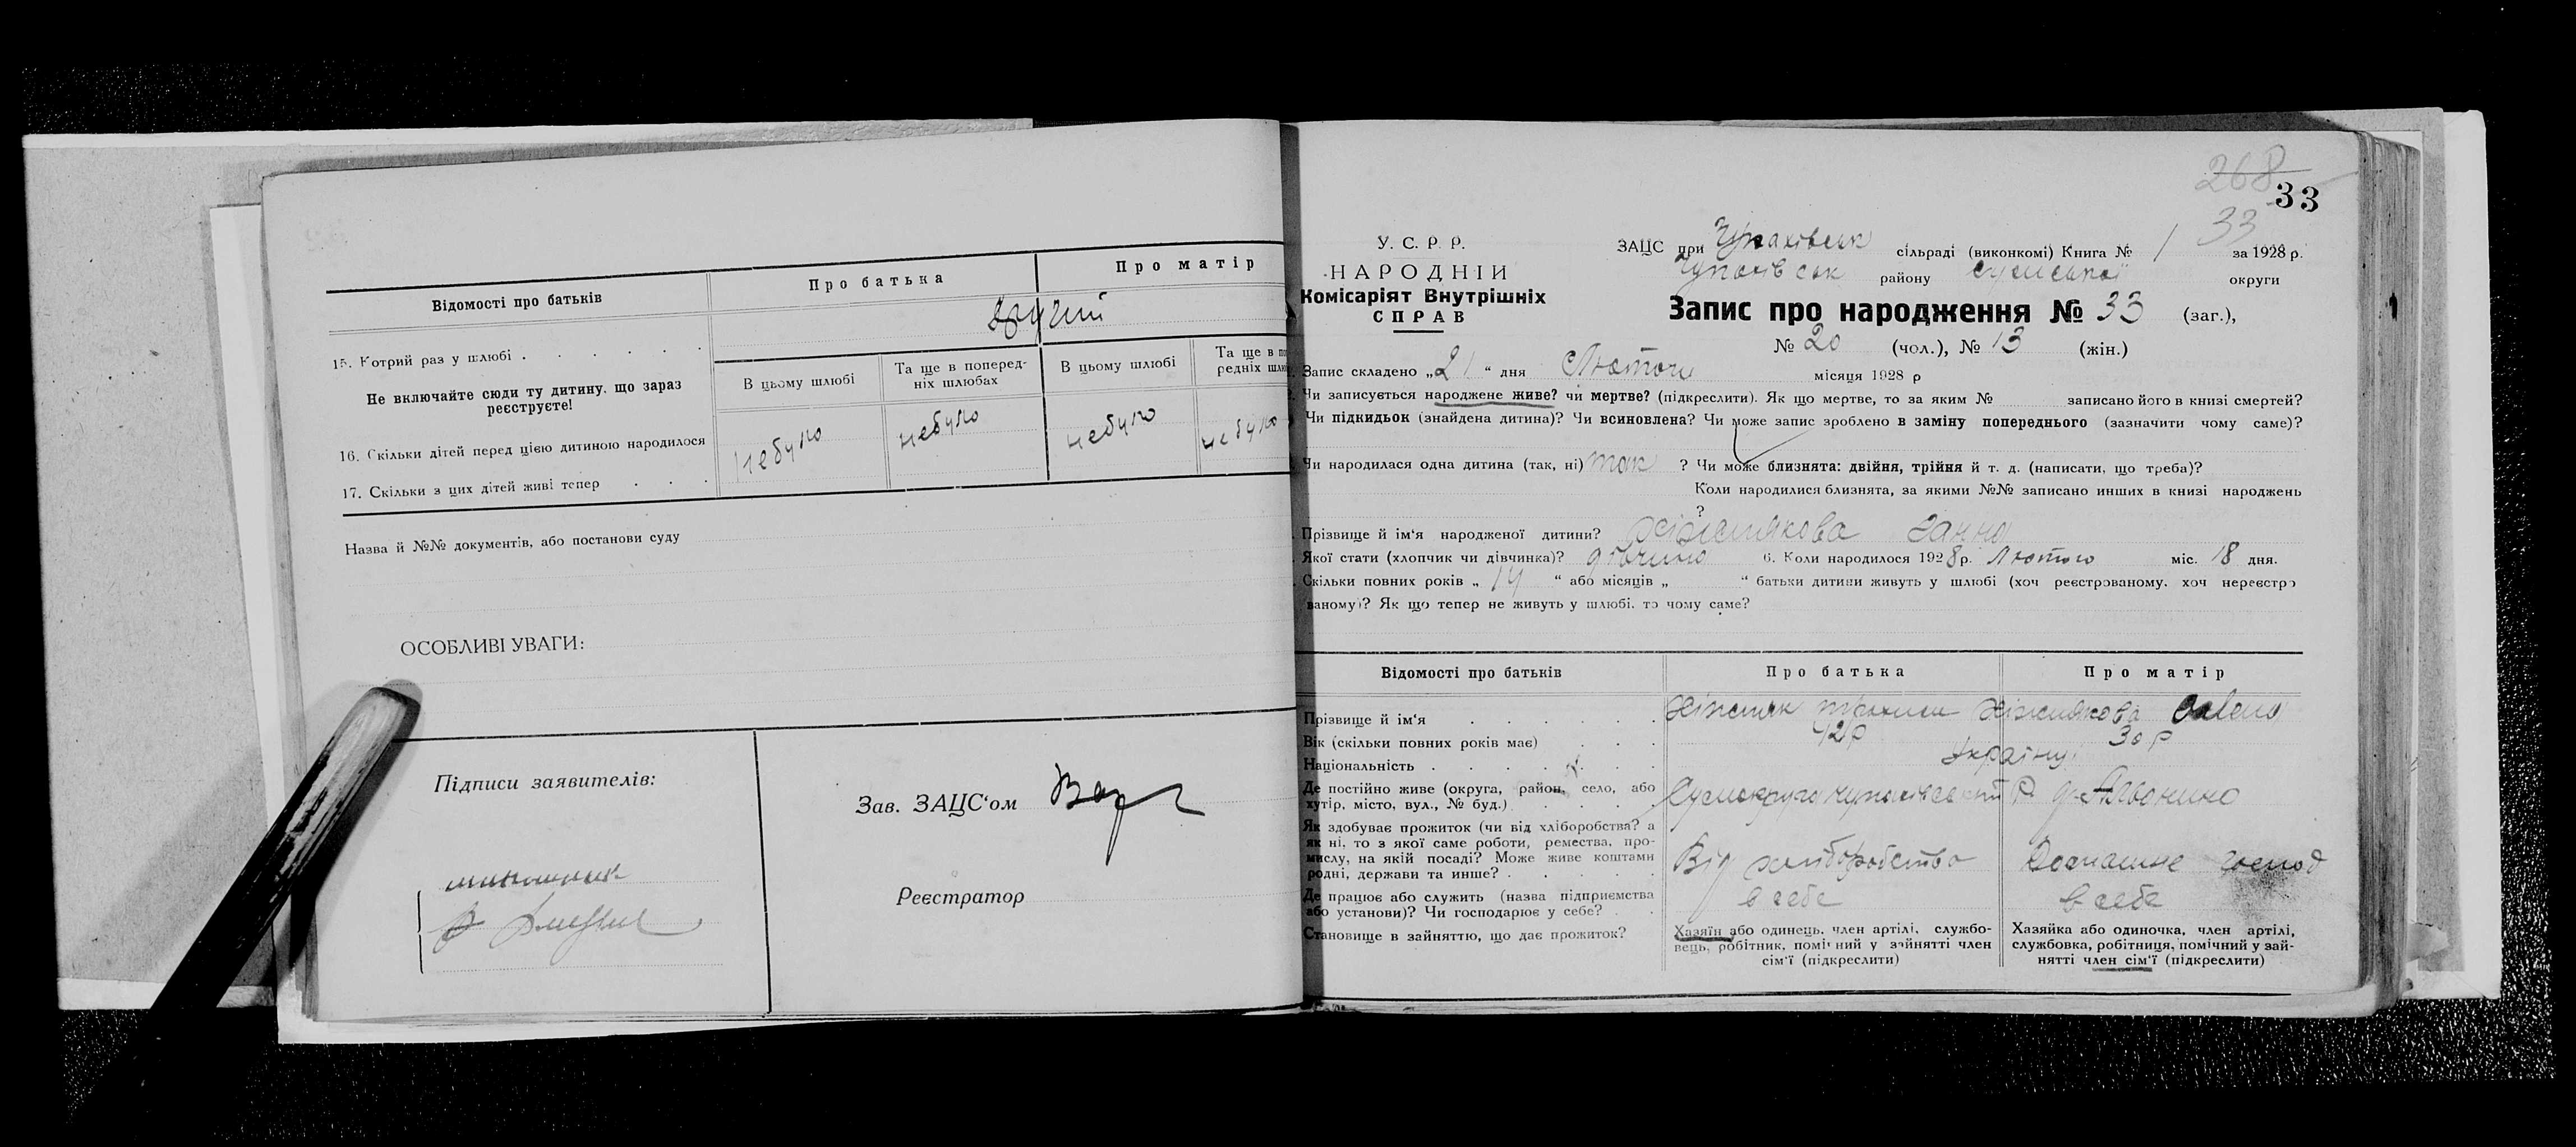 Відомості про батьків
Про батька
Про матір
15. Котрий раз у шлюбі
другий
Не включайте сюди ту дитину, що зараз
реєструєте!
В цьому шлюбі
Та ще в поперед-
ніх шлюбах
В цьому шлюбі
Та ще в по
редніх шлю
16. Скільки дітей перед цією дитиною народилося
небуло
небуло
небуло
небуло
17. Скільки з цих дітей живі тепер
Назва й №№ документів, або постанови суду
ОСОБЛИВІ УВАГИ:
Підписи заявителів:
Зав. ЗАЦС‘ом
Реєстратор
268
33
33
У. С. Р. Р.
НАРОДНІЙ
Комісаріят Внутрішніх
СПРАВ
ЗАЦС при Чупахівськ сільраді (виконкомі) Книга № 1 за 1928 р.
Чупахівськ району Сумської округи
Запис про народження № 33 (заг.),
№ 20 (чол.), № 13 (жін.)
Запис складено „21“ дня Лютого місяця 1928 р
Чи записується народжене живе? чи мертве? (підкреслити). Як що мертве, то за яким № записано його в книзі смертей?
Чи підкидьок (знайдена дитина)? Чи всиновлена? Чи може запис зроблено в заміну попереднього (зазначити чому саме)?
Чи народилася одна дитина (так, ні) так ? Чи може близнята: двійня, трійня й т. д. (написати, що треба)?
Коли народилися близнята, за якими №№ записано инших в книзі народжень
?
Прізвище й ім‘я народженої дитини? Хіжнякова Ганна
Якої стати (хлопчик чи дівчинка)? дівчина 6. Коли народилося 1928 р. Лютого міс. 18 дня.
Скільки повних років „14“ або місяців „ “ батьки дитини живуть у шлюбі (хоч реєстрованому, хоч нереєстро
ваному)? Як що тепер не живуть у шлюбі, то чому саме?
Відомості про батьків
Про батька
Про матір
Прізвище й ім‘я
Хіжняк Трохим
Хіжнякова Олена
Вік (скільки повних років має)
42 р
30 р
Національність
Україн
Де постійно живе (округа, район, село, або
хутір, місто, вул., № буд.)
Сумокруга Чупахівський Р.
Як здобуває прожиток (чи від хліборобства? а
як ні, то з якої саме роботи, ремества, про-
мислу, на якій посаді? Може живе коштами
родні, держави та инше?
Від хліборобства
Домашнє господ
Де працює або служить (назва підприємства
або установи)? Чи господарює у себе?
в себе
в себе
Становище в зайняттю, що дає прожиток?
Хазяїн або одинець, член артілі, службо-
вець, робітник, помічний у зайнятті член
сім‘ї (підкреслити)
Хазяйка або одиночка, член артілі,
службовка, робітниця, помічний у зай-
нятті член сім‘ї (підкреслити)